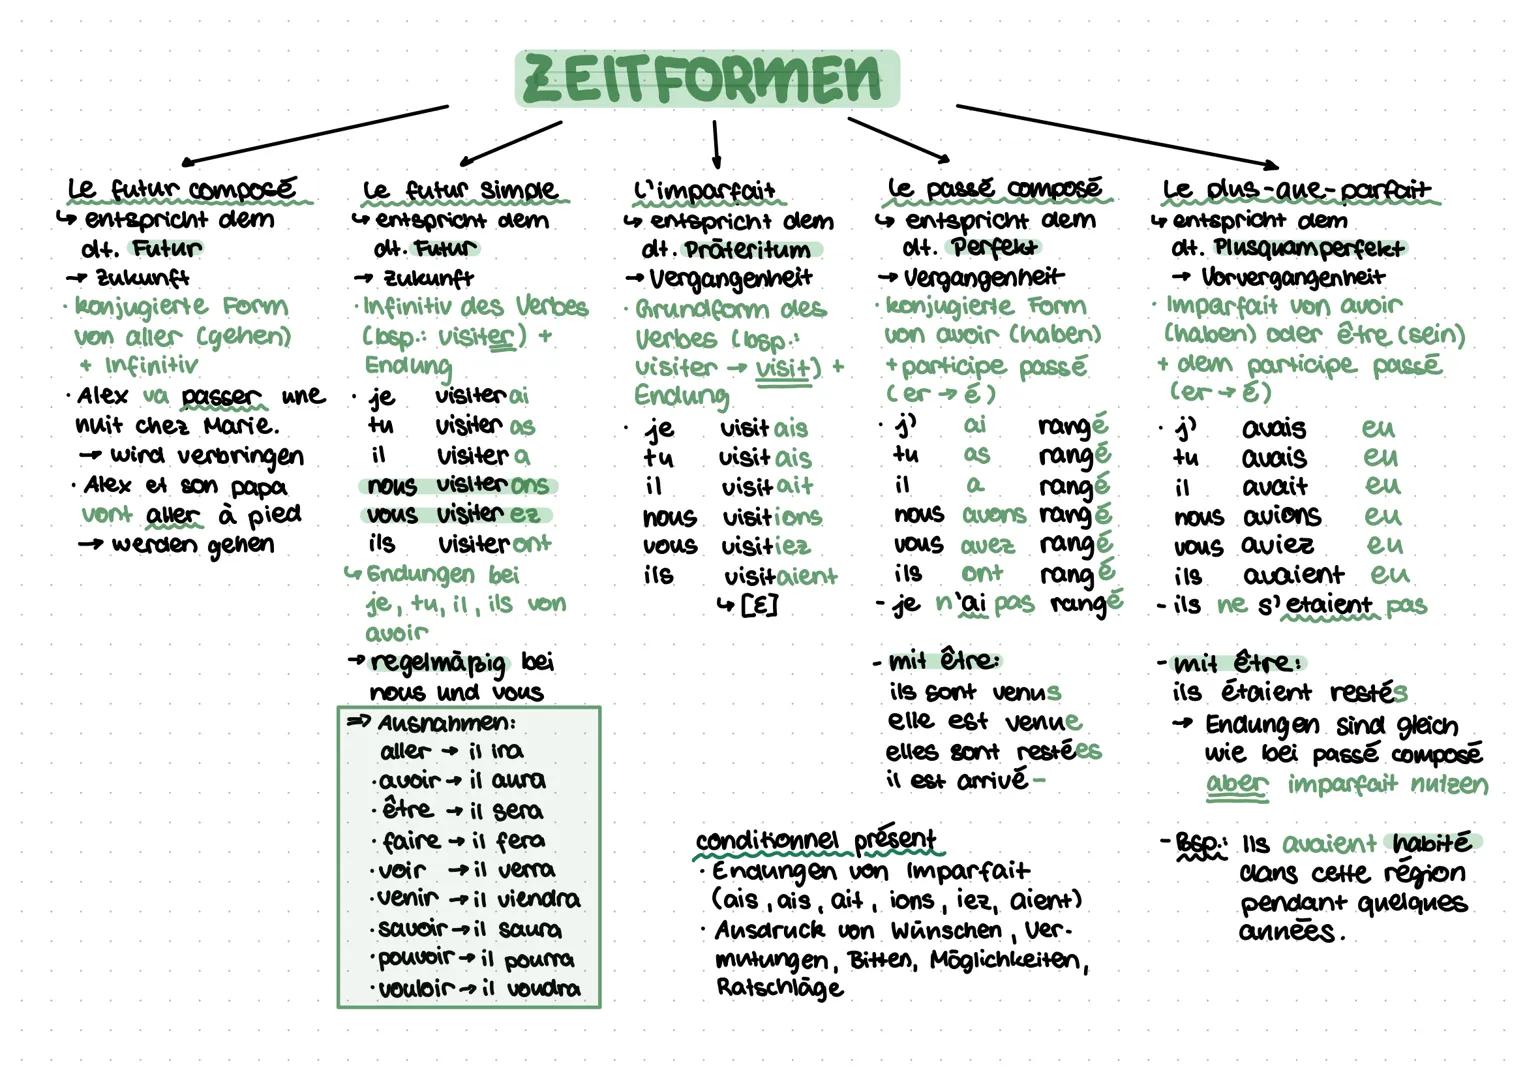 ZEITFORMEN
Le futur composé
↳ entspricht dem
dt. Futur
→ Zukunft
· konjugierte Form
von aller (gehen)
+ Infinitiv
· Alex va passer une
nuit chez Marie.
→ wird verbringen
· Alex et son papa
vont aller à pied
→ werden gehen
Le futur simple
↳ entspricht dem
dt. Futur
→ Zukunft
· Infinitiv des Verbes
(bsp.: visiter) +
Endung
· je visiterai
tu visiteras
il visitera
nous visiterons
vous visiterez
ils visiteront
↳ Endungen bei
je, tu, il, ils von
avoir
→ regelmäßig bei
nous und vous
⇒ Ausnahmen:
aller → il ira
· avoir → il aura
· être → il sera
· faire → il fera
· voir → il verra
· venir → il viendra
· savoir → il saura
· pouvoir → il pourra
· vouloir → il voudra
L'imparfait
↳ entspricht dem
dt. Präteritum
→ Vergangenheit
· Grundform des
Verbes (bsp.:
visiter → visit) +
Endung
· je visitais
tu visitais
il visitait
nous visitions
vous visitiez
ils visitaient
↳ [ɛ]
Le passé composé
↳ entspricht dem
dt. Perfekt
→ Vergangenheit
· konjugierte Form
von avoir (haben)
+ participe passé
(er → é)
· j' ai rangé
tu as rangé
il a rangé
nous avons rangé
vous avez rangé
ils ont rangé
- je n'ai pas rangé
- mit être:
ils sont venus
elle est venue
elles sont restées
il est arrivé -
Le plus-que-parfait
↳ entspricht dem
dt. Plusquamperfekt
→ Vorvergangenheit
· Imparfait von avoir
(haben) oder être (sein)
+ dem participe passé
(er → é)
· j' avais eu
tu avais eu
il avait eu
nous avions eu
vous aviez eu
ils avaient eu
- ils ne s'etaient pas
- mit être:
ils étaient restés
→ Endungen sind gleich
wie bei passé composé
aber imparfait nutzen
- Bsp.: Ils avaient habité
dans cette région
pendant quelques
années.
conditionnel présent
· Endungen von Imparfait
(ais, ais, ait, ions, iez, aient)
· Ausdruck von Wünschen, Ver-
mutungen, Bitten, Möglichkeiten,
Ratschläge